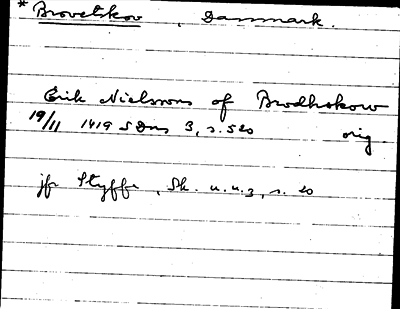 * Brovetskov, Danmark.
Erik Nielssons of Brodhskoww
19/11 1419 SDns 3, s. 520 orig
jfr Styffe, Sk. u. u. 3, s. 20